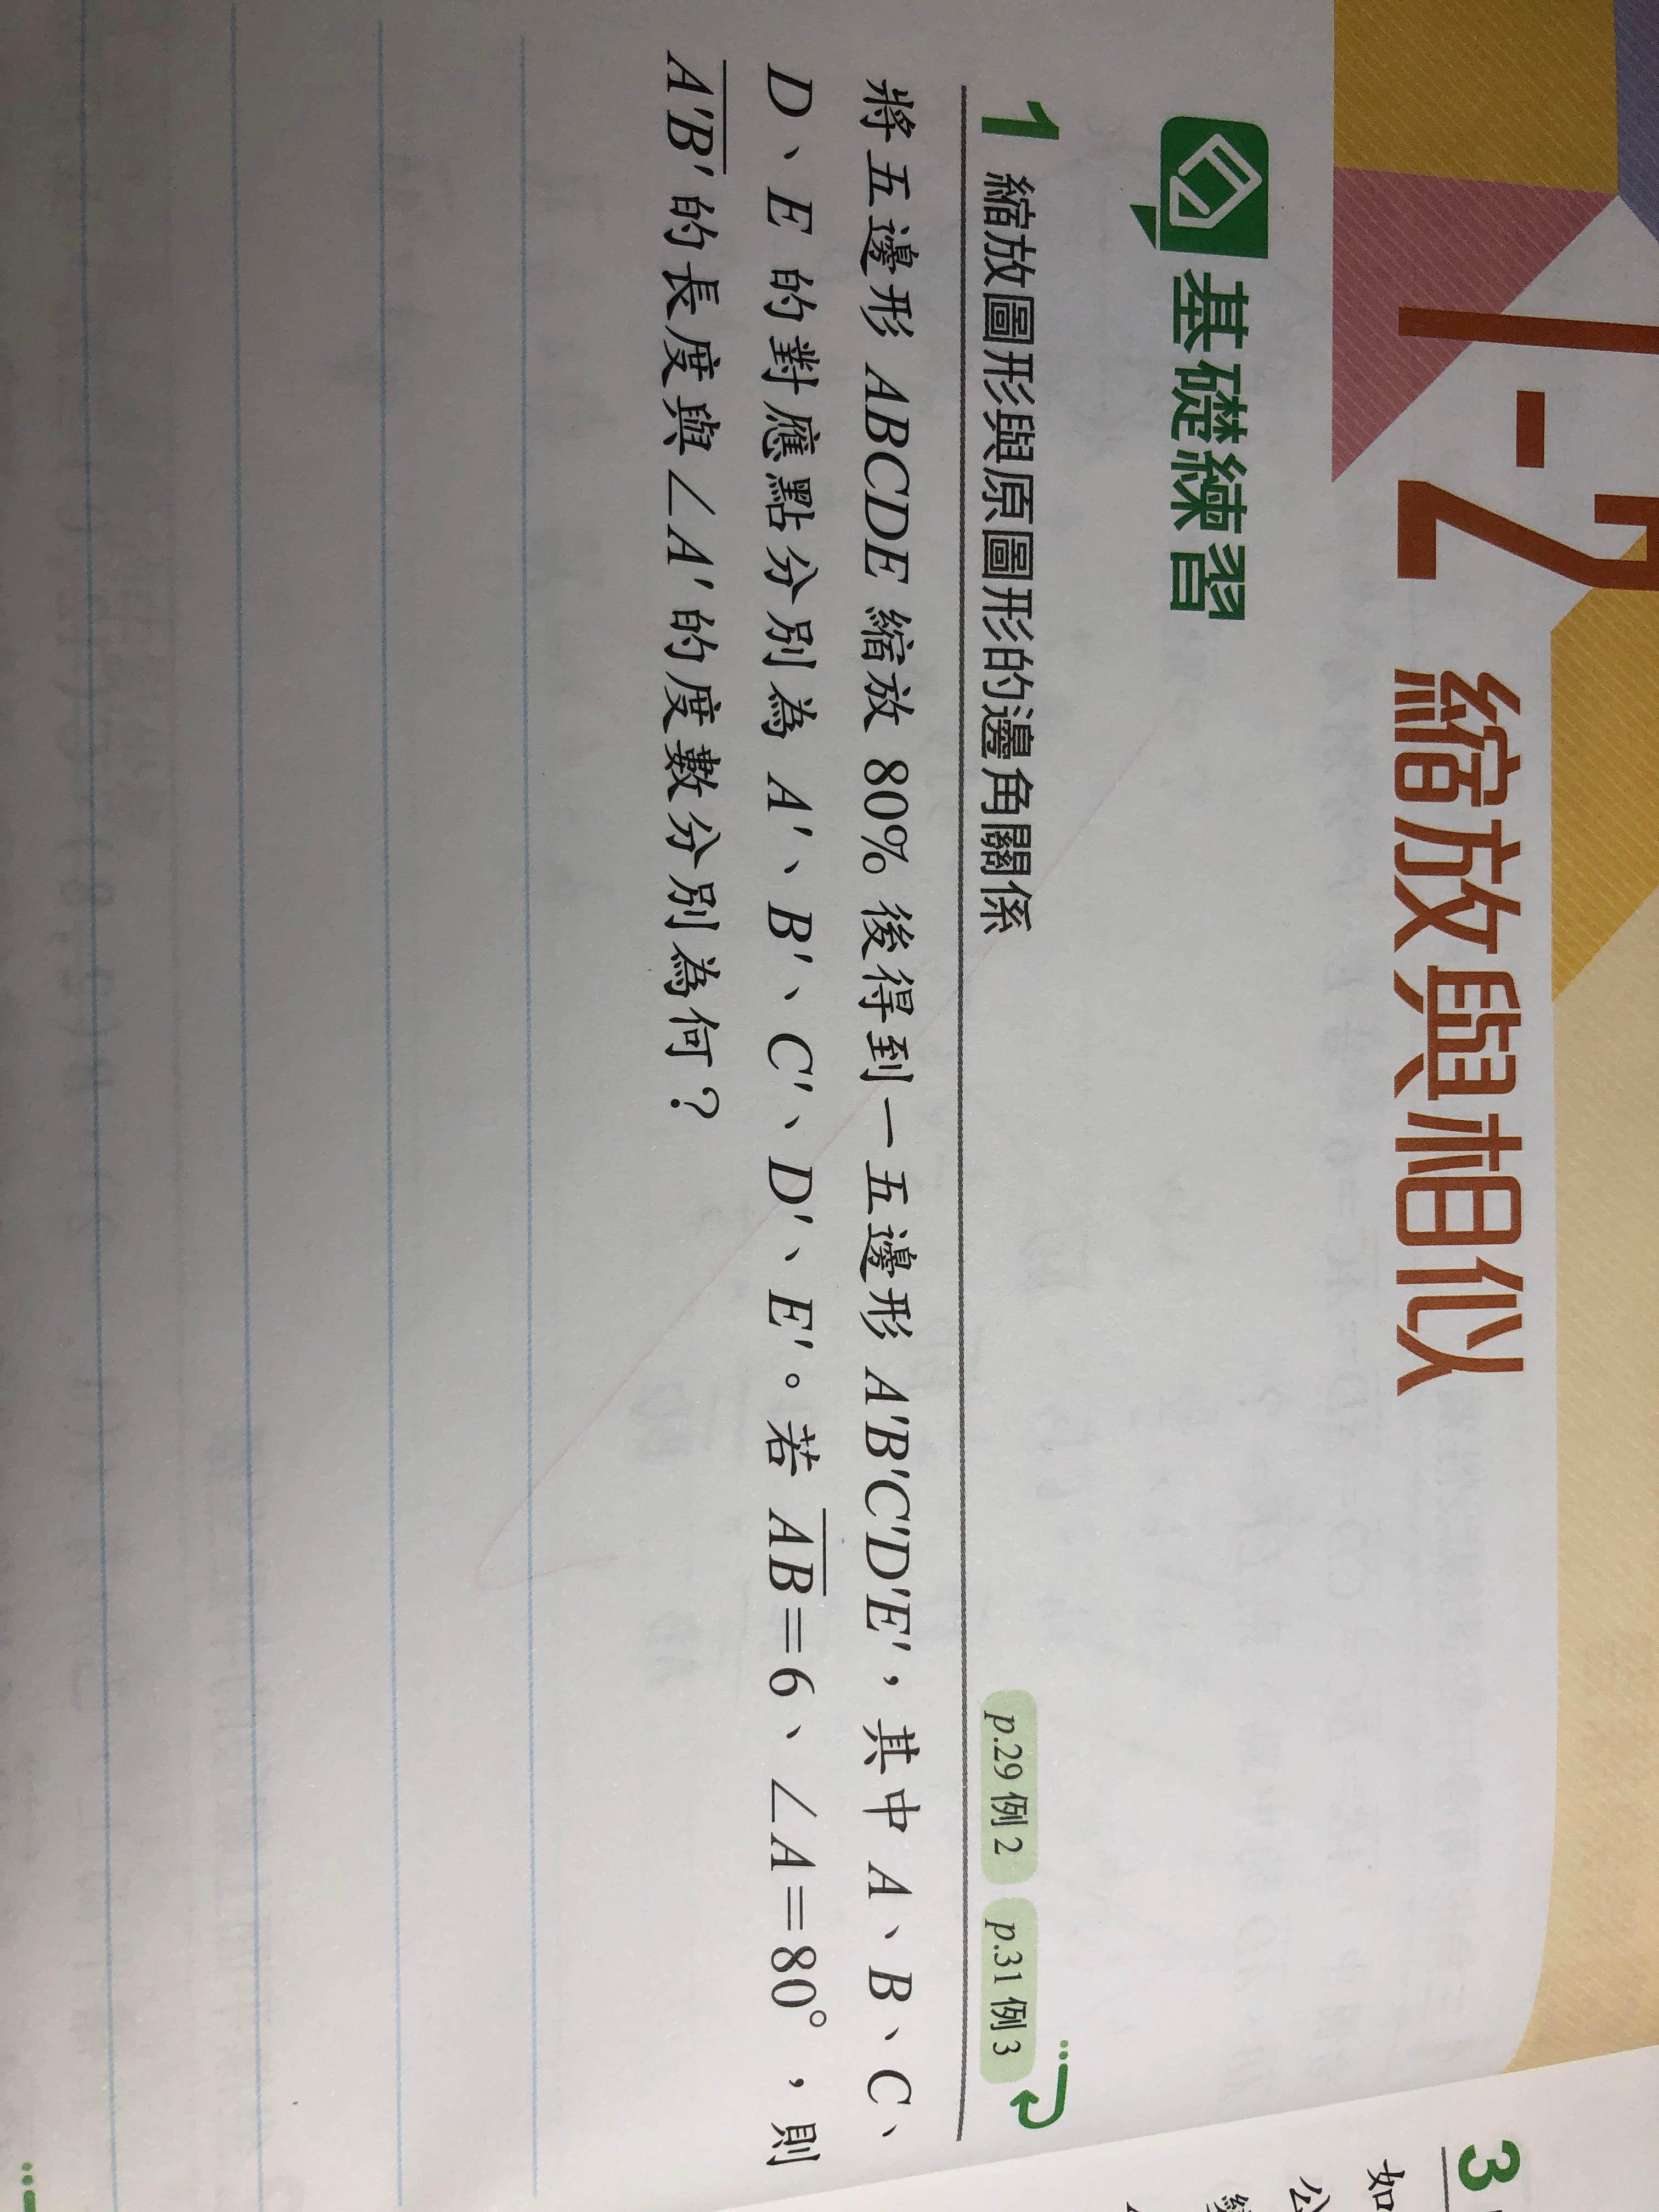 1-2 縮放與相似
基礎練習
1 縮放圖形與原圖形的邊角關係 p.29 例 2 p.31 例 3
將五邊形 ABCDE 縮放 80% 後得到一五邊形 A'B'C'D'E',其中 A、B、C、
D、E 的對應點分別為 A'、B'、C'、D'、E'。若 AB=6、∠A=80°,則
A'B' 的長度與∠A' 的度數分別為何?
3
如
公